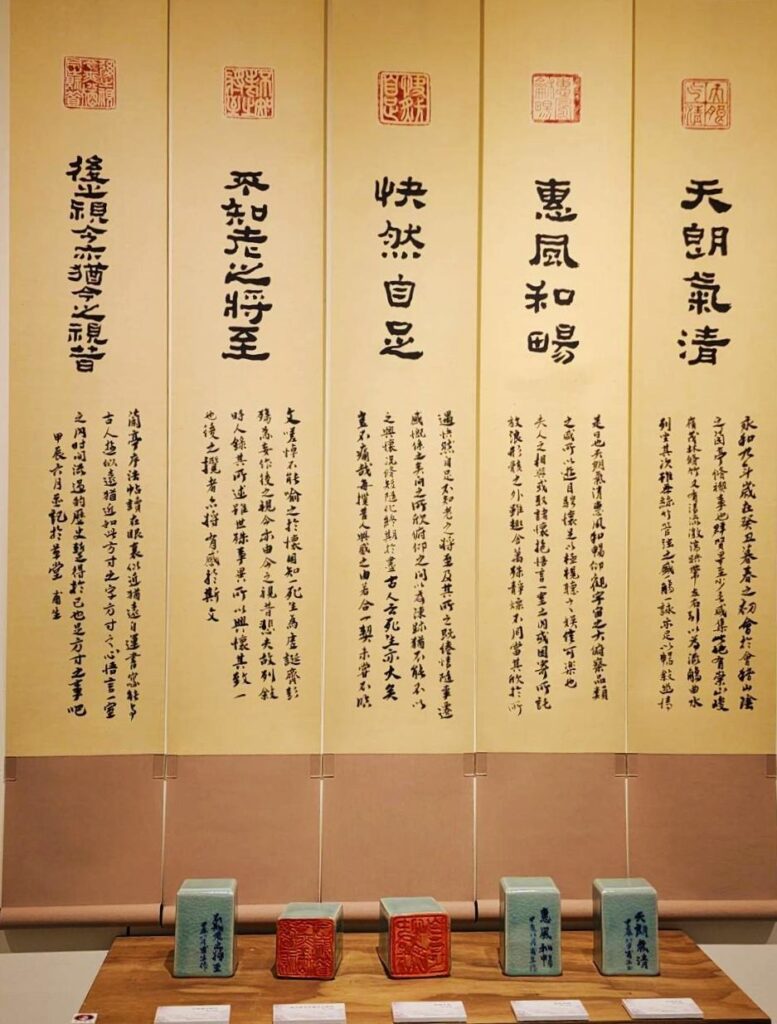 天朗氣清
天朗氣清
永和九年歲在癸丑暮春之初會於會稽山陰
之蘭亭修禊事也群賢畢至少長咸集此地有崇山峻
嶺茂林修竹又有清流激湍映帶左右引以為流觴曲水
列坐其次雖無絲竹管弦之盛一觴一詠亦足以暢敘幽情
惠風和暢
惠風和暢
是日也天朗氣清惠風和暢仰觀宇宙之大俯察品類
之盛所以遊目騁懷足以極視聽之娛信可樂也
夫人之相與或取諸懷抱悟言一室之內或因寄所託
放浪形骸之外雖趣舍萬殊靜燥不同當其欣於所
快然自足
快然自足
遇快然自足不知老之將至及其所之既倦情隨事遷
感慨係之矣向之所欣俯仰之間以為陳跡猶不能不以
之興懷況修短隨化終期於盡古人云死生亦大矣
豈不痛哉每攬昔人興感之由若合一契未嘗不臨
不知老之將至
不知老之將至
文嗟悼不能喻之於懷固知一死生為虛誕齊彭
殤為妄作後之視今亦由今之視昔悲夫故列敘
時人錄其所述雖世殊事異所以興懷其致一
也後之攬者亦將有感於斯文
後之視今亦猶今之視昔
蘭亭序法帖讀在眼裏似近猶遠自運書寫能與
古人遊似遠猶近如此方寸之字方寸之心悟言一室
之內時間流過的歷史得於己也是方寸之事吧
甲辰六月並記於草堂 甫生
天朗氣清
甲辰八月甫生作
惠風和暢
甲辰八月甫生作
不知老之將至
甲辰八月甫生作